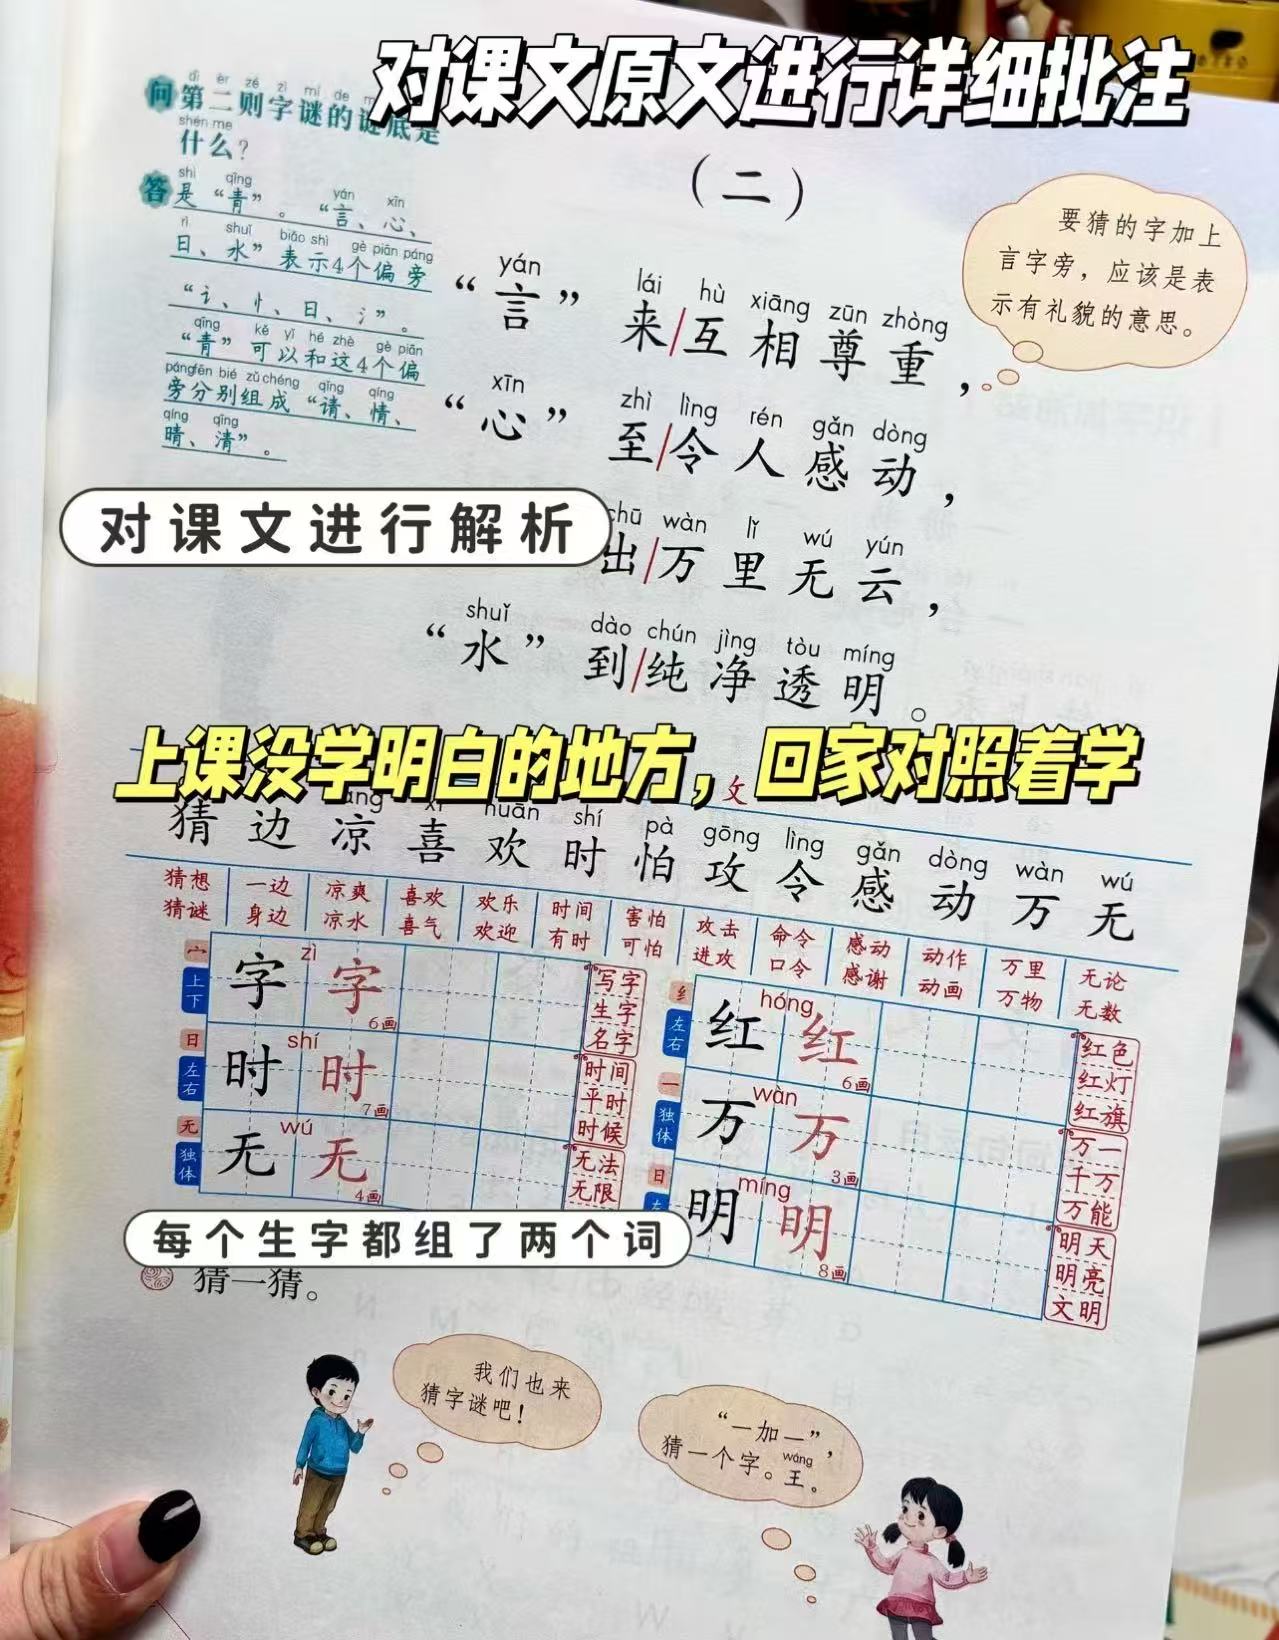 对课文原文进行详细批注
dì èr zé zì mí de
问 第二则字谜的谜底是
shén me
什么？
shì qīng yán xīn
答 是“青”。“言、心、
rì shuǐ biǎo shì gè piān páng
日、水”表示4个偏旁
“讠、忄、日、氵”。
qīng kě yǐ hé zhè gè piān
“青”可以和这4个偏
páng fēn bié zǔ chéng qǐng qíng
旁分别组成“请、情、
qíng qīng
晴、清”。
（二）
要猜的字加上
言字旁，应该是表
示有礼貌的意思。
yán lái hù xiāng zūn zhòng
“言”来/互相尊重，
xīn zhì lìng rén gǎn dòng
“心”至/令人感动，
对课文进行解析
chū wàn lǐ wú yún
出/万里无云，
shuǐ dào chún jìng tòu míng
“水”到/纯净透明。
上课没学明白的地方，回家对照着学
攵
huān shí pà gōng lìng gǎn dòng wàn wú
猜 边 凉 喜 欢 时 怕 攻 令 感 动 万 无
猜想 一边 凉爽 喜欢 欢乐 时间 害怕 攻击 命令 感动 动作 万里 无论
猜谜 身边 凉水 喜气 欢迎 有时 可怕 进攻 口令 感谢 动画 万物 无数
宀 上下 字 zì 字 6画 写字 生字 名字
日 左右 时 shí 时 7画 时间 平时 时候
无 独体 无 wú 无 4画 无法 无限
纟 左右 红 hóng 红 6画 红色 红灯 红旗
一 独体 万 wàn 万 3画 万一 千万 万能
日 左 明 míng 明 8画 明天 明亮 文明
每个生字都组了两个词
猜一猜。
我们也来
猜字谜吧！
“一加一”，
wáng
猜一个字。王。